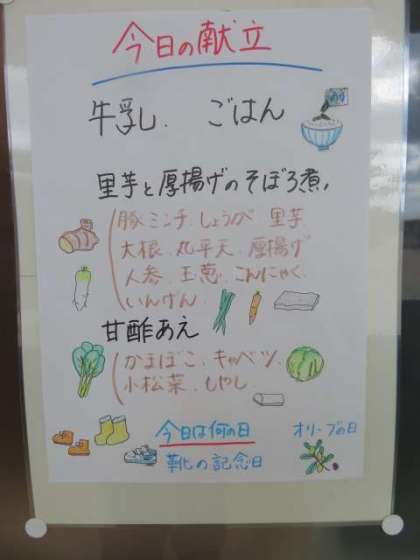 今日の献立
牛乳. ごはん
里芋と厚揚げのそぼろ煮,
豚ミンチ.しょうが 里芋
大根.丸平天.厚揚げ
人参.玉葱.こんにゃく.
いんげん.
甘酢あえ
かまぼこ.キャベツ.
小松菜.もやし.
今日は何の日 オリーブの日
靴の記念日